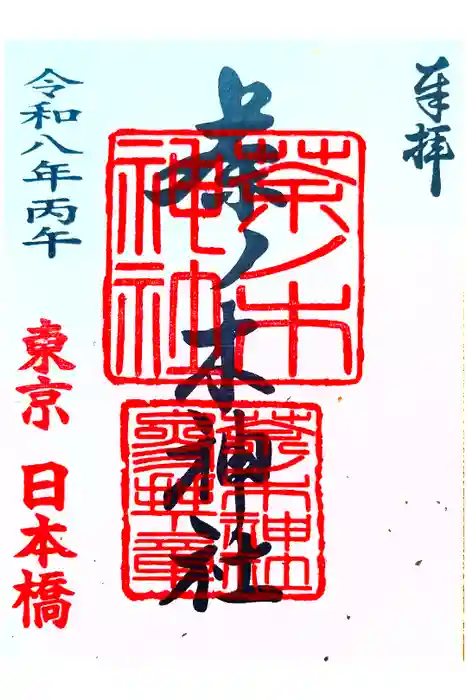 奉拝
茶ノ木神社
茶ノ木
神社
參拜章
令和八年丙午
東京 日本橋